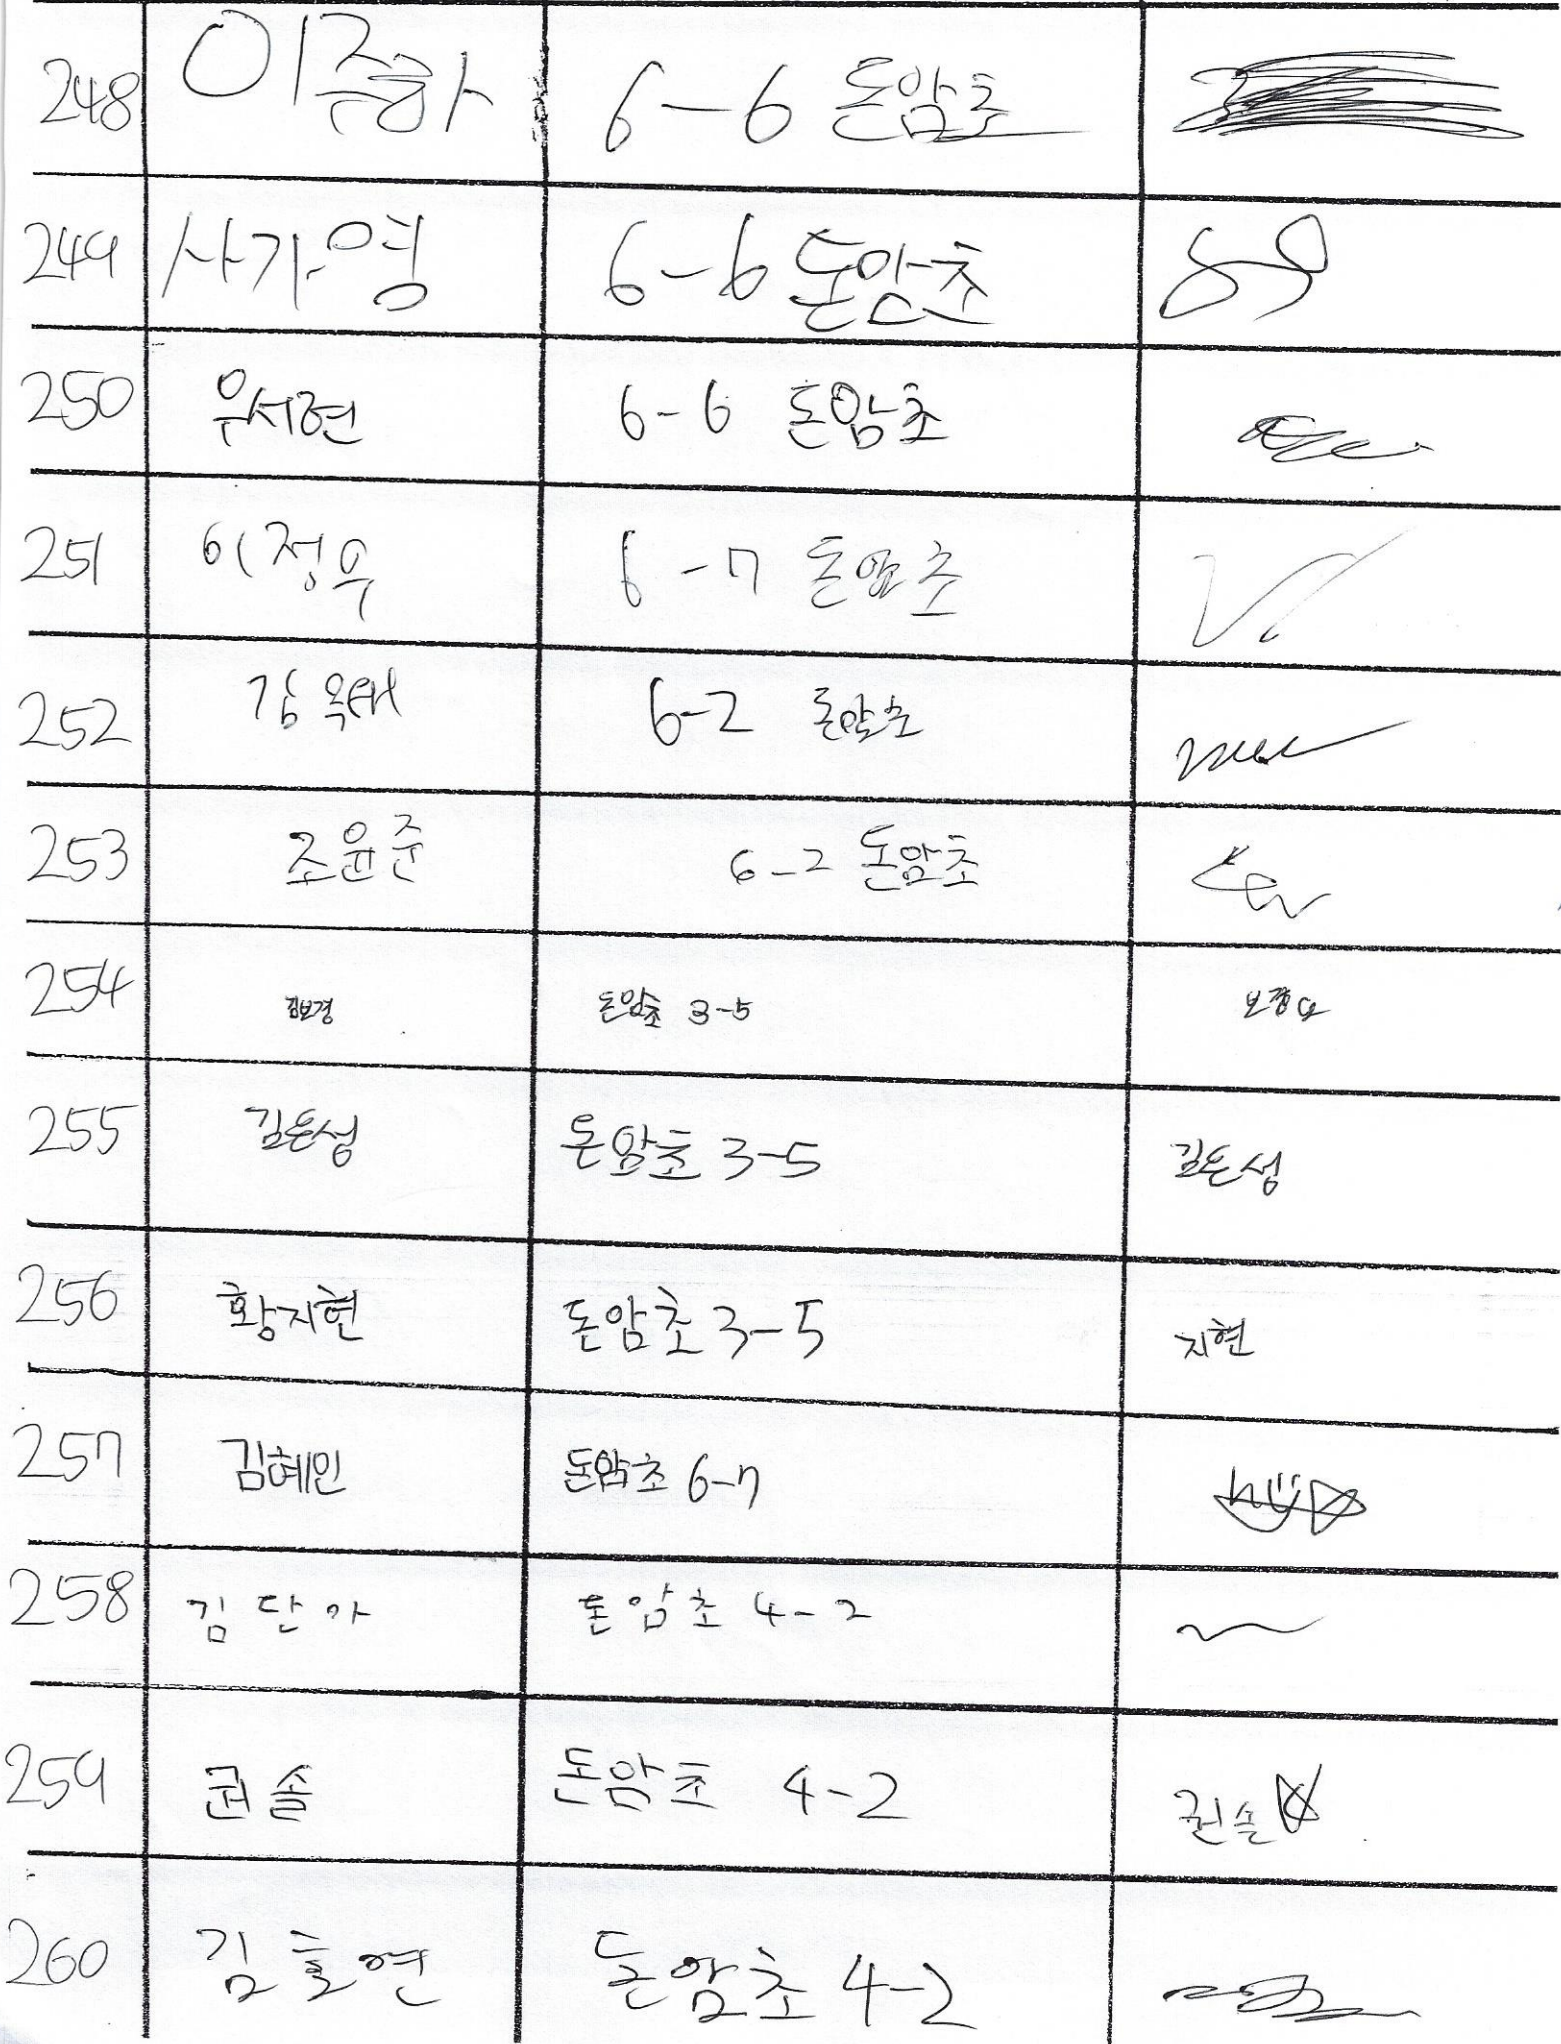 248 이주하 6-6 돈암초
249 사가영 6-6 돈암초
250 우서현 6-6 돈암초
251 이정우 6-7 돈암초
252 김옥태 6-2 돈암초
253 조윤준 6-2 돈암초
254 김보경 돈암초 3-5 보경
255 김돈성 돈암초 3-5 김돈성
256 황지현 돈암초 3-5 지현
257 김혜인 돈암초 6-7
258 김단아 돈암초 4-2
259 권솔 돈암초 4-2 권솔
260 김효연 돈암초 4-2